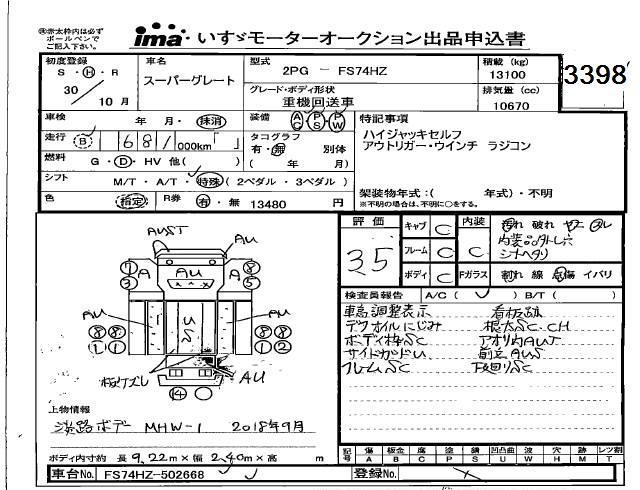 ※赤太枠内は必ず
ボールペンで
ご記入下さい。
ima いすゞモーターオークション出品申込書
初度登録
S・H・R
30/10月
車名
スーパーグレート
型式
2PG － FS74HZ
グレード・ボディ形状
重機回送車
積載 (kg)
13100
排気量 (cc)
10670
3398
車検
年 月・抹消
装備
AC PS PW
走行
B 681 000km
タコグラフ
有・無 別体
( 年 月)
燃料
G・D・HV 他( )
シフト
M/T・A/T・特殊 (2ペダル・3ペダル)
色
指定
R券
有・無 13480 円
特記事項
ハイジャッキセルフ
アウトリガー・ウインチ ラジコン
架装物年式:( 年式)・不明
※不明の場合は、不明に○をする。
AUST
AU
AU
A
A
⑦
③
⑧
⑤
AU
AU
⑧⑧
①①
⑧⑧
①②
AU
⑭
評価
3.5
キャブ C
フレーム C
ボディ C
内装
C
Fガラス
汚れ 破れ ヤニ スレ
内装品外トレ穴
シートヘタリ
割れ 線 点傷 イバリ
検査員報告
A/C ( ) B/T ( )
車高調整表示
看板跡
デフオイルにじみ
根太SC.CH
ボディ枠SC
アオリ内AUT
サイドガードU
前立AUS
フレームSC
下廻りSC
上物情報
淡路ボデー MHW-1 2018年9月
ボディ内寸約 長 9.22m×幅 2.40m×高 m
記号
傷 A
板金 B
腐 C
塗 P
錆 S
凹凸曲 U
波 W
穴 H
跡 M
レツ割 T
車台No. FS74HZ-502668
登録No.